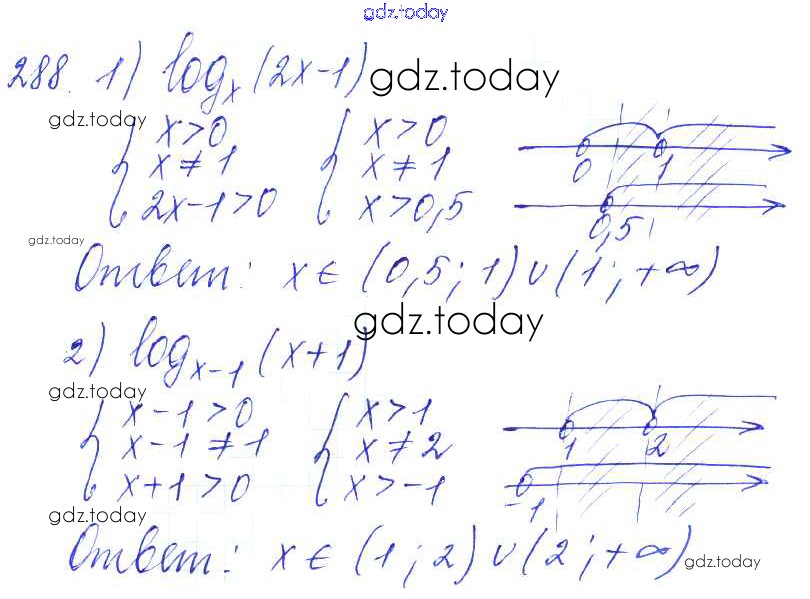 gdz.today
288. 1) log_x (2x-1) gdz.today
gdz.today
{ x>0 { x>0
x≠1 x≠1
2x-1>0 x>0,5
0 1
0,5
gdz.today
Ответ: x ∈ (0,5; 1) ∪ (1; +∞)
gdz.today
2) log_{x-1} (x+1)
gdz.today
{ x-1>0 { x>1
x-1≠1 x≠2
x+1>0 x>-1
1 2
-1
gdz.today
Ответ: x ∈ (1; 2) ∪ (2; +∞) gdz.today